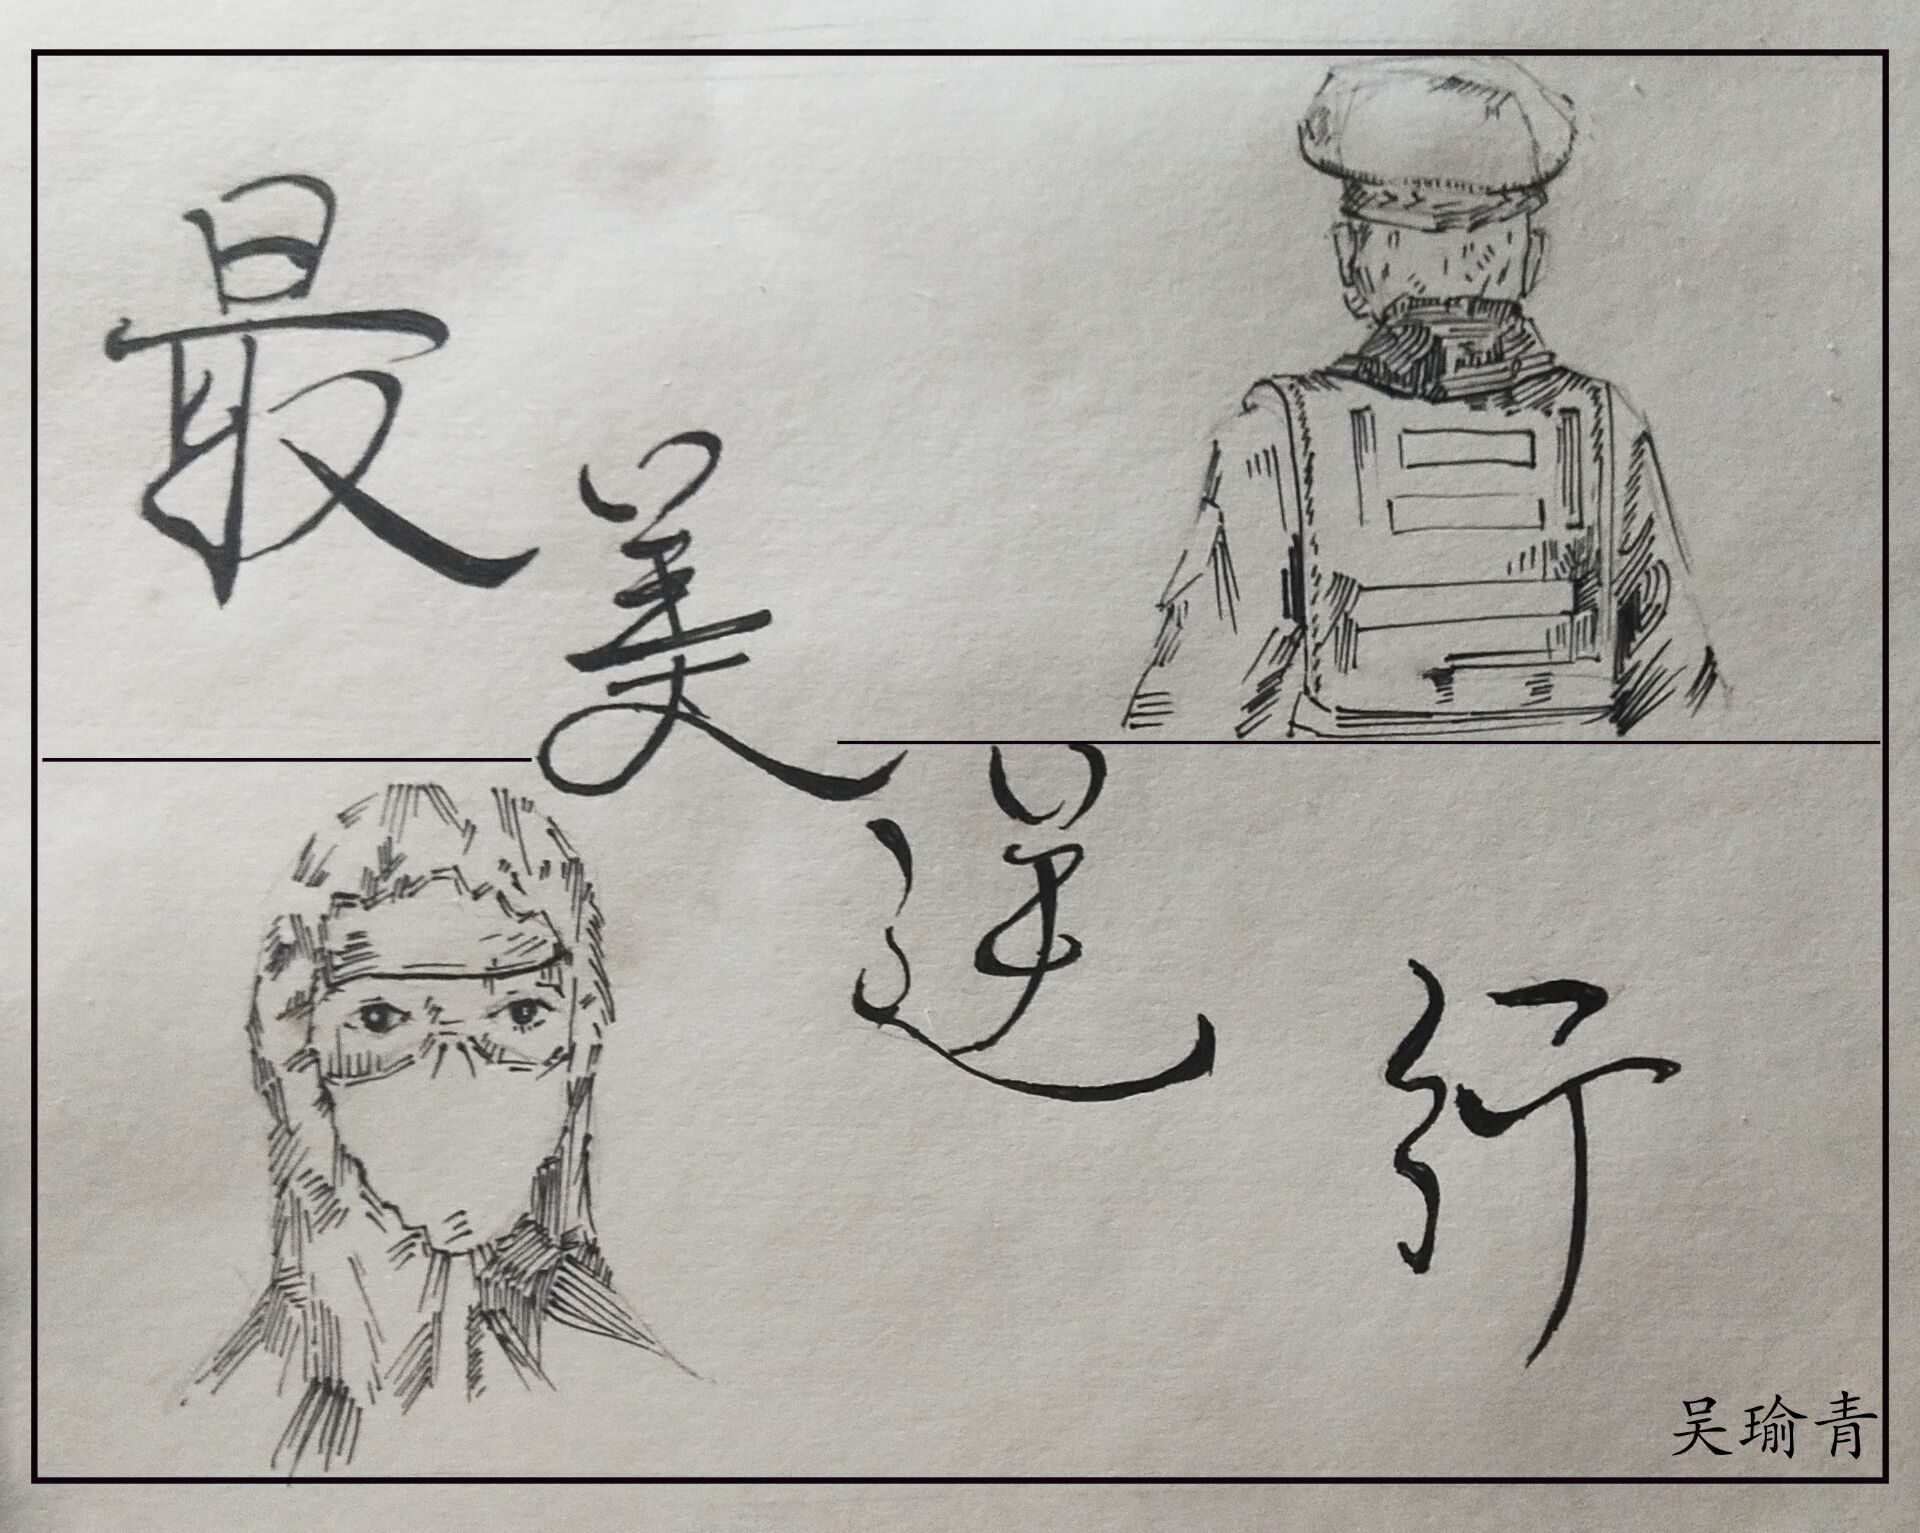 最美逆行
吴瑜青